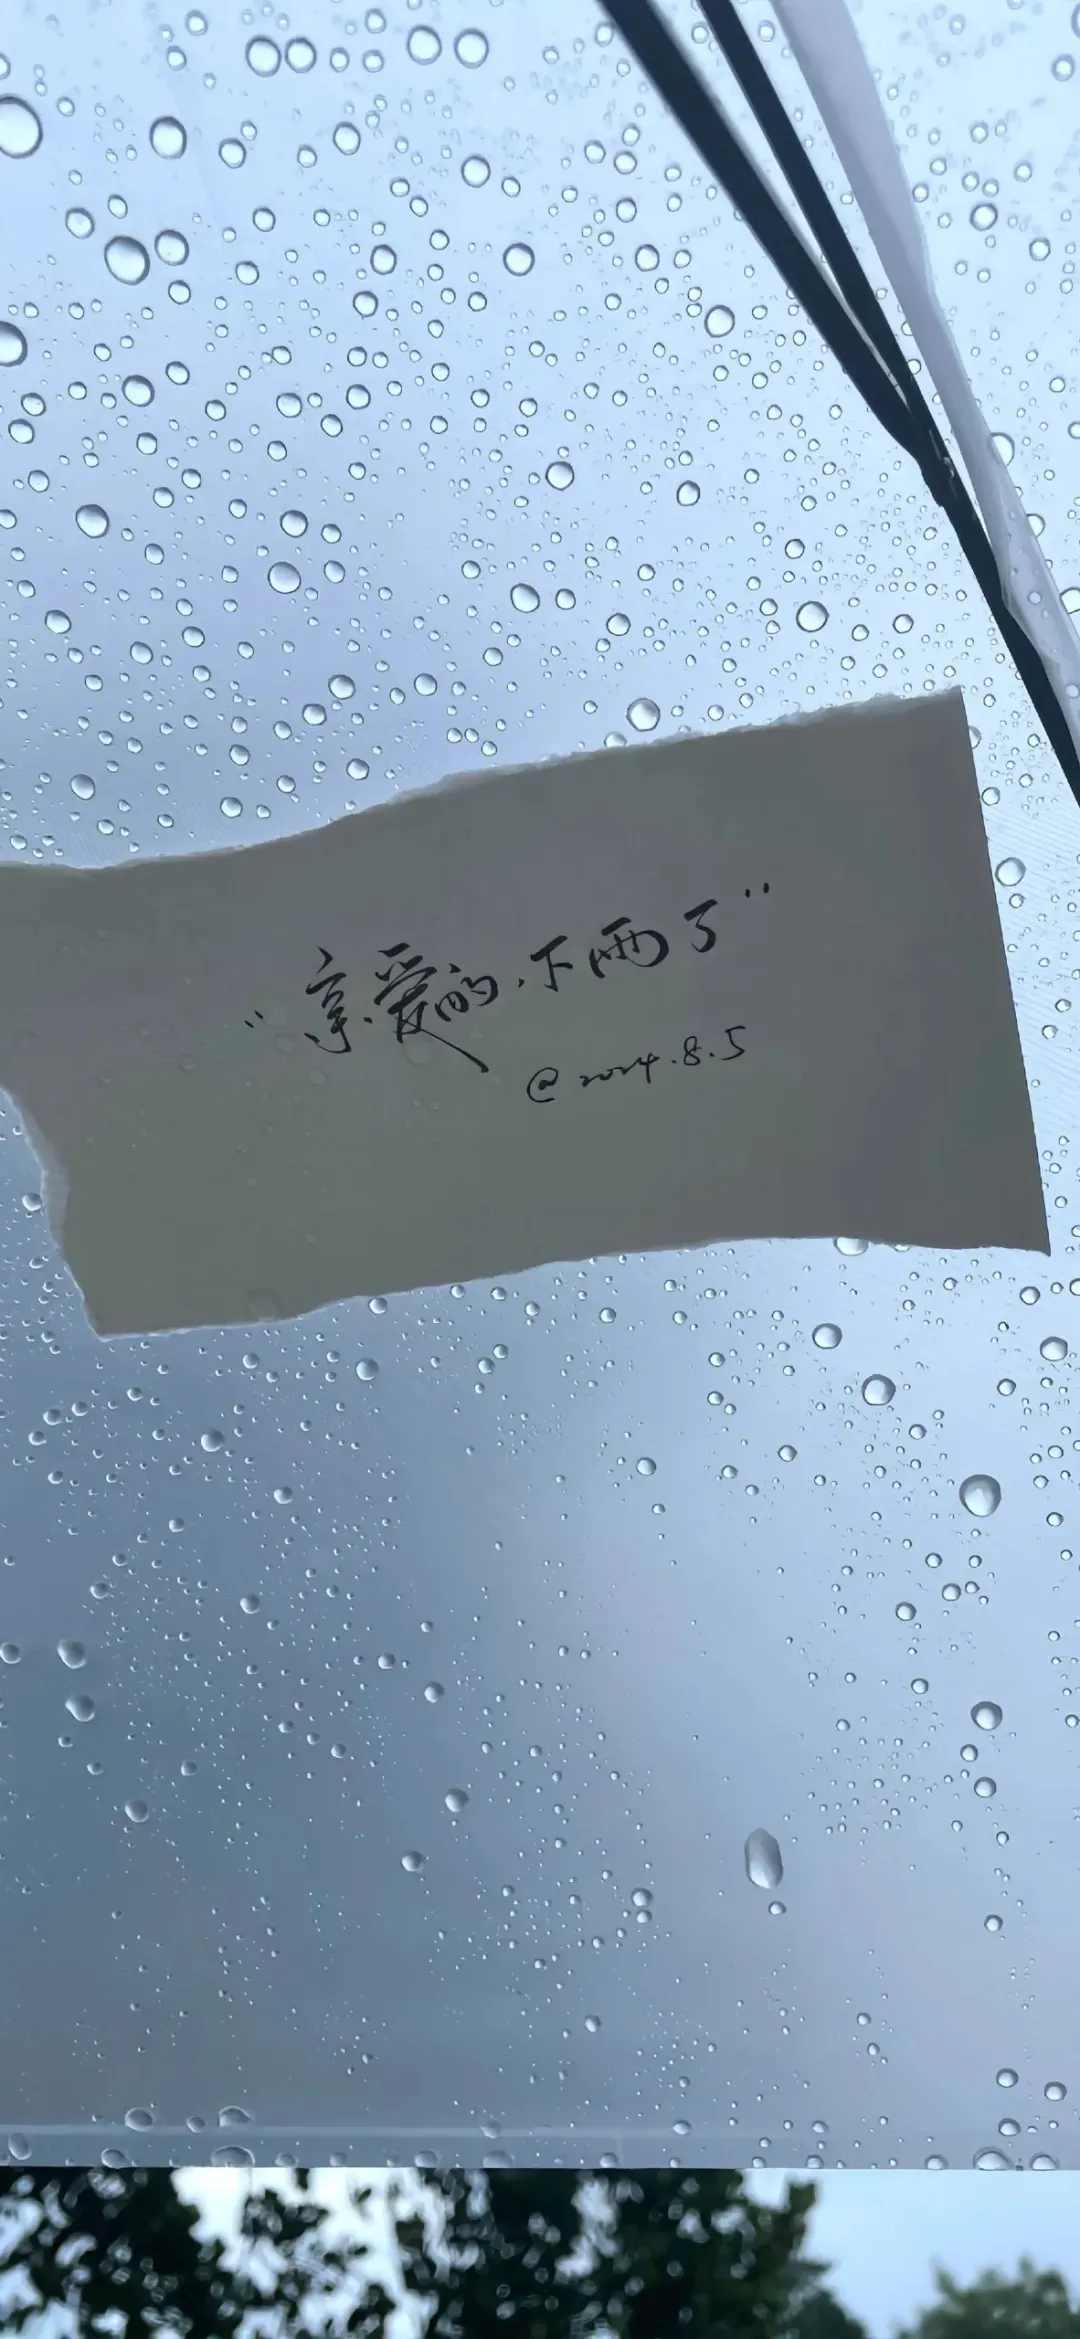 “亲爱的，下雨了”
@2024.8.5